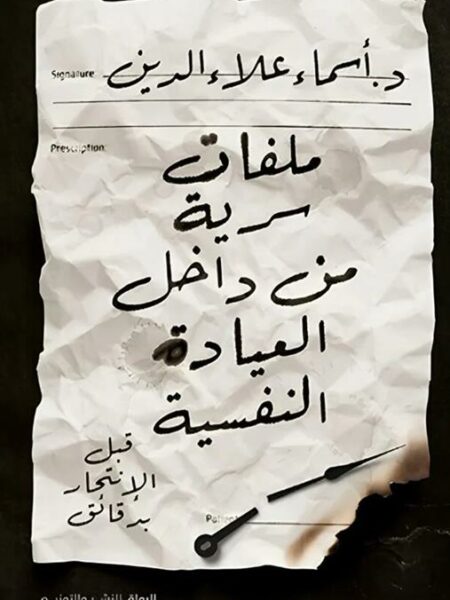 Signature
د. أسماء علاء الدين
Prescription
ملفات
سرية
من داخل
العيادة
النفسية
قبل
الانتحار
بدقائق